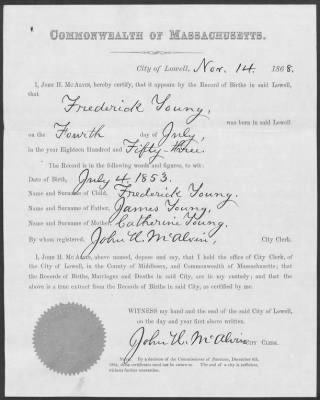 COMMONWEALTH OF MASSACHUSETTS.
City of Lowell, Nov. 14. 1868.
I, JOHN H. MCALVIN, hereby certify, that it appears by the Record of Births in said Lowell,
that
Frederick Young, was born in said Lowell
on the Fourth day of July,
in the year Eighteen Hundred and Fifty-three.
The Record is in the following words and figures, to wit:
Date of Birth, July 4. 1853.
Name and Surname of Child, Frederick Young.
Name and Surname of Father, James Young,
Name and Surname of Mother, Catherine Young.
By whom registered, John H. McAlvin, City Clerk.
I, JOHN H. MCALVIN, above named, depose and say, that I hold the office of City Clerk, of
the City of Lowell, in the County of Middlesex, and Commonwealth of Massachusetts; that
the Records of Births, Marriages and Deaths in said City, are in my custody; and that the
above is a true extract from the Records of Births in said City, as certified by me.
WITNESS my hand and the seal of the said City of Lowell,
on the day and year first above written.
John H. McAlvin CITY CLERK.
NOTE. By a decision of the Commissioner of Pensions, December 6th,
1864, these certificates must not be sworn to. The seal of a city is sufficient,
without further attestation.